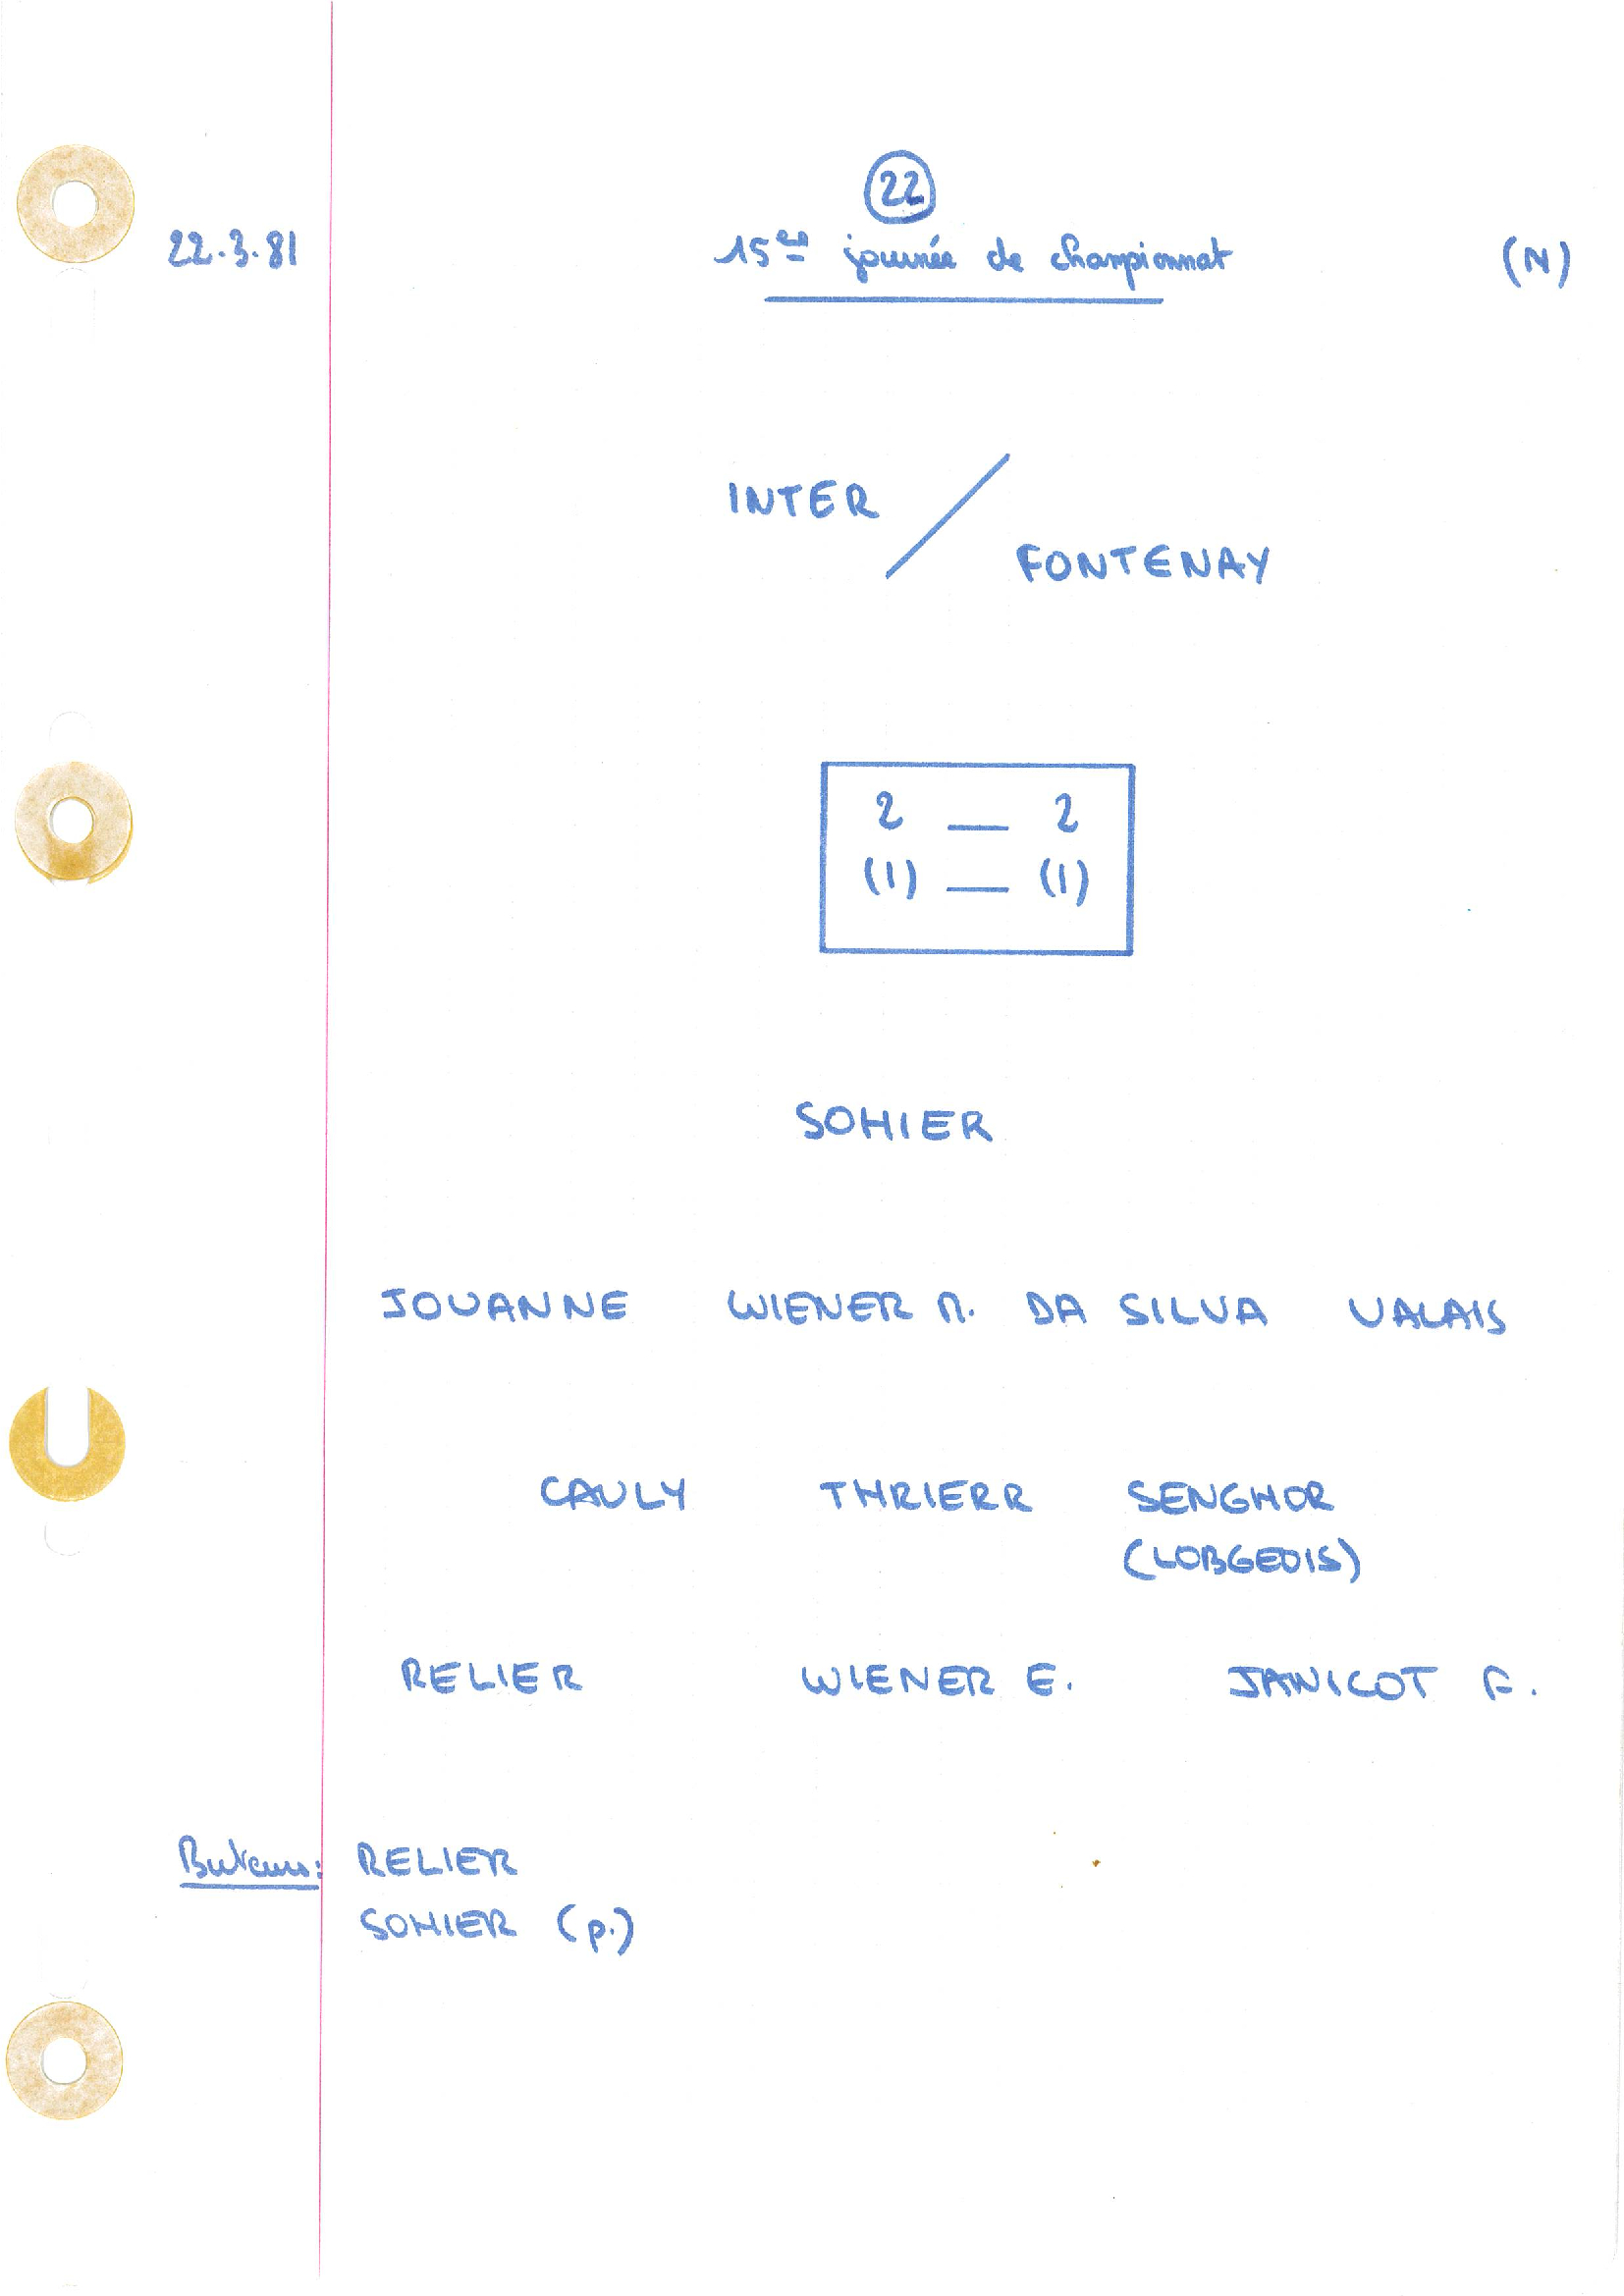 22
22.3.81 15ème journée de championnat (N)
INTER /
FONTENAY
2 — 2
(1) — (1)
SOHIER
JOUANNE WIENER M. DA SILVA VALAIS
CAULY THRIERR SENGHOR
(LOBGEOIS)
RELIER WIENER E. JANICOT F.
Buteurs: RELIER
SOHIER (p.)